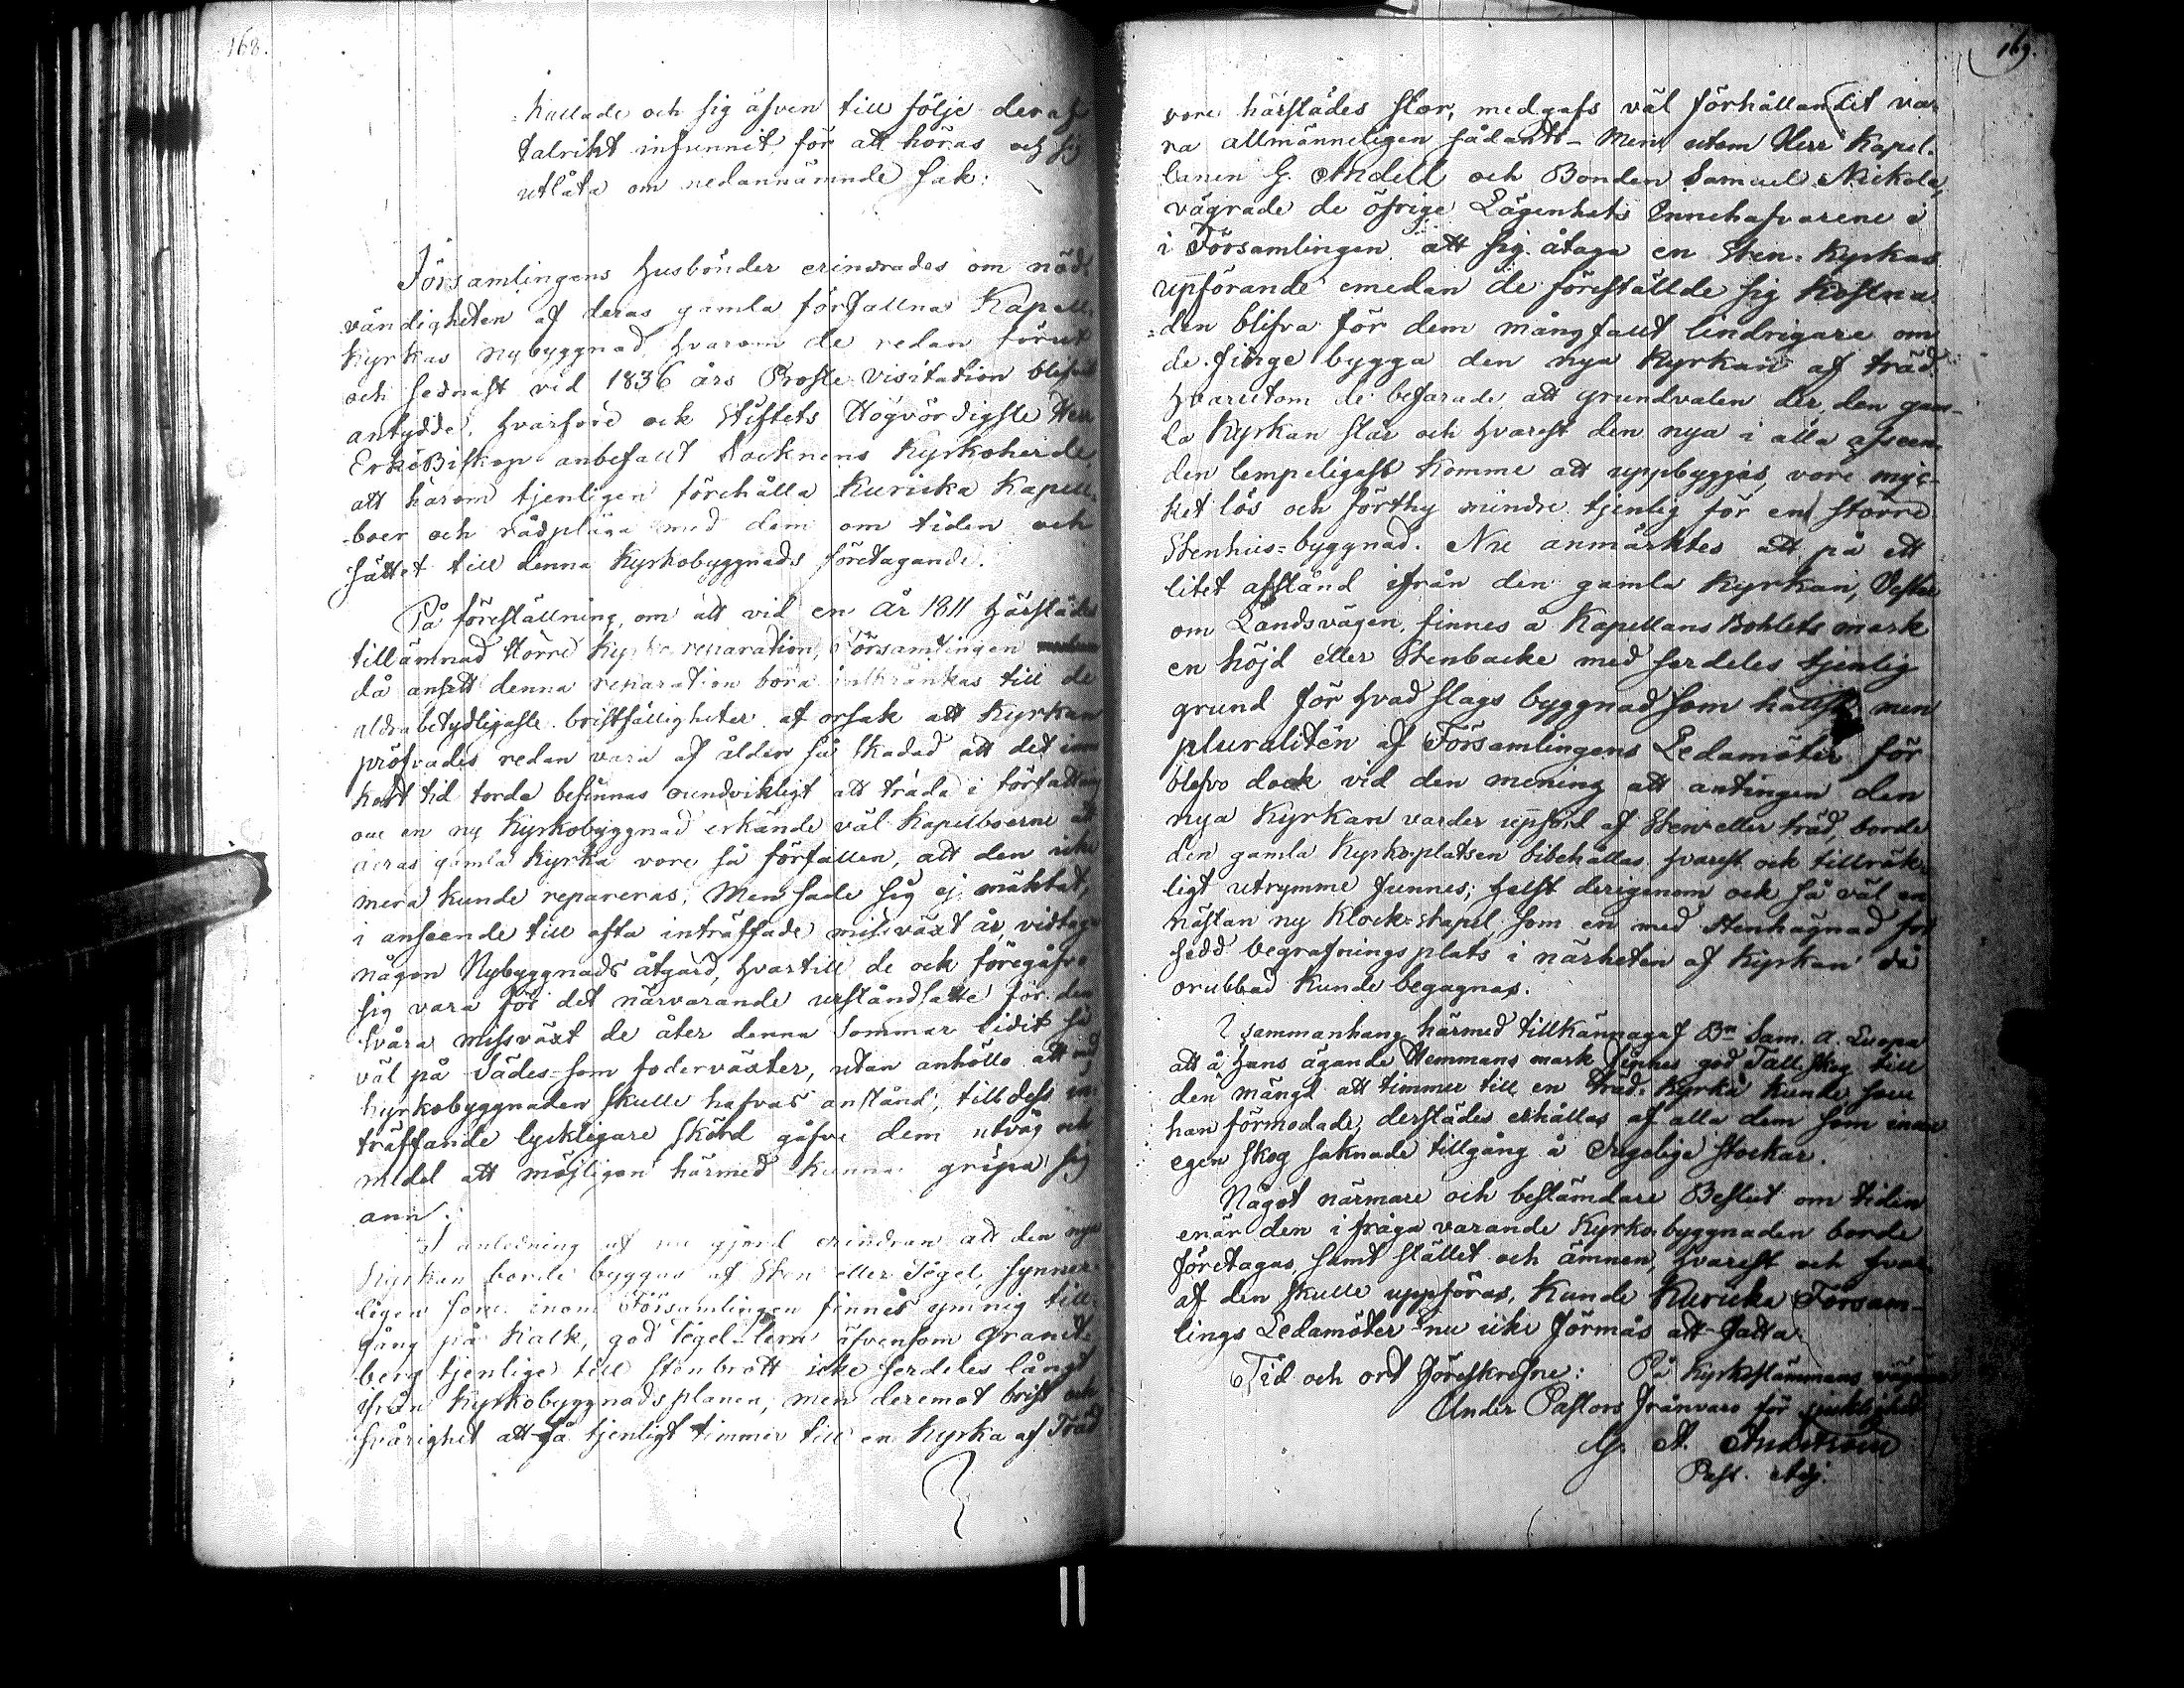 168.
kallade och sig äfven till följe deraf
talrikt infunnit för att höras och sig
utlåta om nedannämnde sak:
Församlingens husbönder erindrades om nöd-
vändigheten af deras gamla förfallna Kapell
Kyrkas nybyggnad, hvarom de redan förut
och sednast vid 1836 års Prosts Visitation blifvit
antydde, hvarföre ock Stiftets Högvördigste Herr
ErkeBiskop anbefallt Socknens Kyrkoherde,
att härom tjenligen förehålla Kuricka Kapell-
boer och rådpläga med dem om tiden och
sättet till denna Kyrkobyggnads företagande.
På föreställning, om att vid en År 1811 härstädes
tillämnad större Kyrko reparation, Församlingen
då ansett denna reparation böra inskränkas till de
aldrabetydligaste bristfälligheter af orsak att Kyrkan
pröfvades redan vara af ålder så skadad att det inom
kort tid torde befinnas oundvikligt att träda i författning
om en ny Kyrkobyggnad erkände väl Kapellboerne att
deras gamla Kyrka vore så förfallen, att den icke
mera kunde repareras; Men sade sig ej mäktat,
i anseende till ofta inträffade missväxt år, vidtaga
någon Nybyggnads åtgärd, hvartill de ock föregåfvo
sig vara för det närvarande urståndsatte för den
svåra missväxt de åter denna Sommar lidit så
väl på Sädes- som foderväxter, utan anhöllo att med
Kyrkobyggnaden skulle hafvas anstånd, tilldess in-
träffande lyckligare skörd gåfve dem utväg och
medel att möjligen härmed kunna gripa sig
ann.
I anledning af nu gjord erindran att den nya
Kyrkan borde byggas af Sten eller Tegel, synner-
ligen som inom Församlingen finnes ymnig till-
gång på Kalk, god Tegel-lera äfvensom Granit-
berg tjenlige till stenbrott icke serdeles långt
ifrån Kyrkobyggnadsplanen, men deremot brist och
svårighet att få tjenligt timmer till en Kyrka af Träd
169.
vore härstädes stor, medgafs väl förhållandet va-
ra allmänneligen sådant - Men utom Herr Kapel-
lanen G. Andell och Bonden Samuel Nickola,
vägrade de öfrige Lägenhets Innehafvarene i
i Församlingen att sig åtaga en Sten-Kyrkas
upförande emedan de föreställde sig kostna-
den blifva för dem mångfallt lindrigare om
de finge bygga den nya Kyrkan af träd.
Hvarutom de befarade att grundvalen der den gam-
la Kyrkan står och hvarest den nya i alla afseen-
den lempeligast komme att uppbyggas, vore myc-
ket lös och förthy mindre tjenlig för en större
Stenhus-byggnad. Nu anmärktes att på ett
litet afstånd ifrån den gamla Kyrkan, Vester
om Landsvägen, finnes å Kapellans Bohlets mark
en höjd eller Stenbacke med serdeles tjenlig
grund för hvad slags byggnad som hällst men
pluralitén af Församlingens Ledamöter för
blefvo dock vid den mening att antingen den
nya Kyrkan varder upförd af Sten eller träd, borde
den gamla Kyrko-platsen bibehållas hvarest ock tillräk-
ligt utrymme funnes; helst derigenom ock så väl en
nästan ny Klock-stapel, som en med Stenhägnad för
sedd begrafningsplats i närheten af Kyrkan då
orubbad kunde begagnas.
I sammanhang härmed tillkännagaf Bn Sam. A. Luopa
att å Hans ägande Hemmans mark finnes god Tall-skog till
den mängd att timmer till en Träd-Kyrka kunde som
han förmodade, derstädes erhållas af alla dem som inom
egen skog saknade tillgång å dugelige stockar.
Något närmare och bestämdare Beslut om tiden
enär den i fråga varande Kyrko-byggnaden borde
företagas, samt stället och ämnen, hvarest och hvar-
af den skulle uppföras, kunde Kuricka Försam-
lings Ledamöter nu icke förmås att fatta.
Tid och ort föreskrefne: På Kyrkostämmans vägnar
Under Pastors frånvaro för sjuklighet
G. A. Andström
Past. Adj.